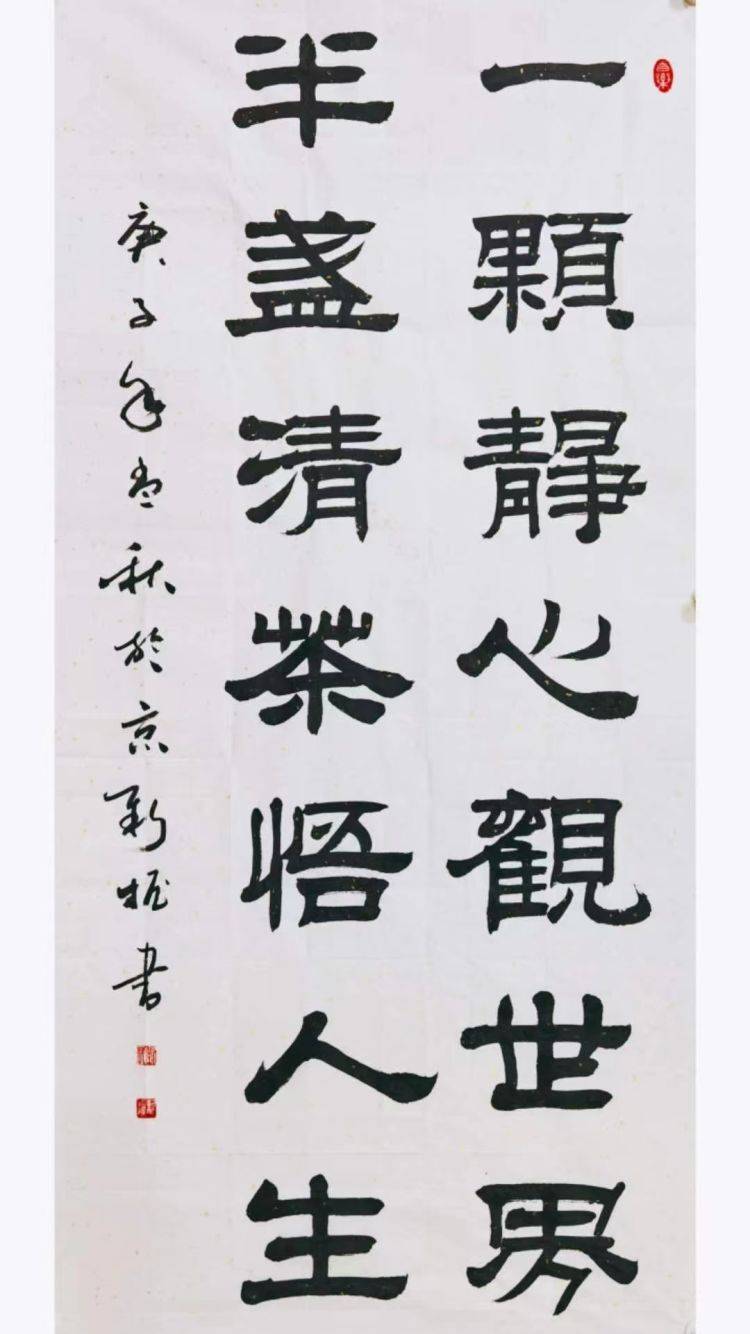 一顆靜心觀世界
半盞清茶悟人生
庚子年孟秋於京 書